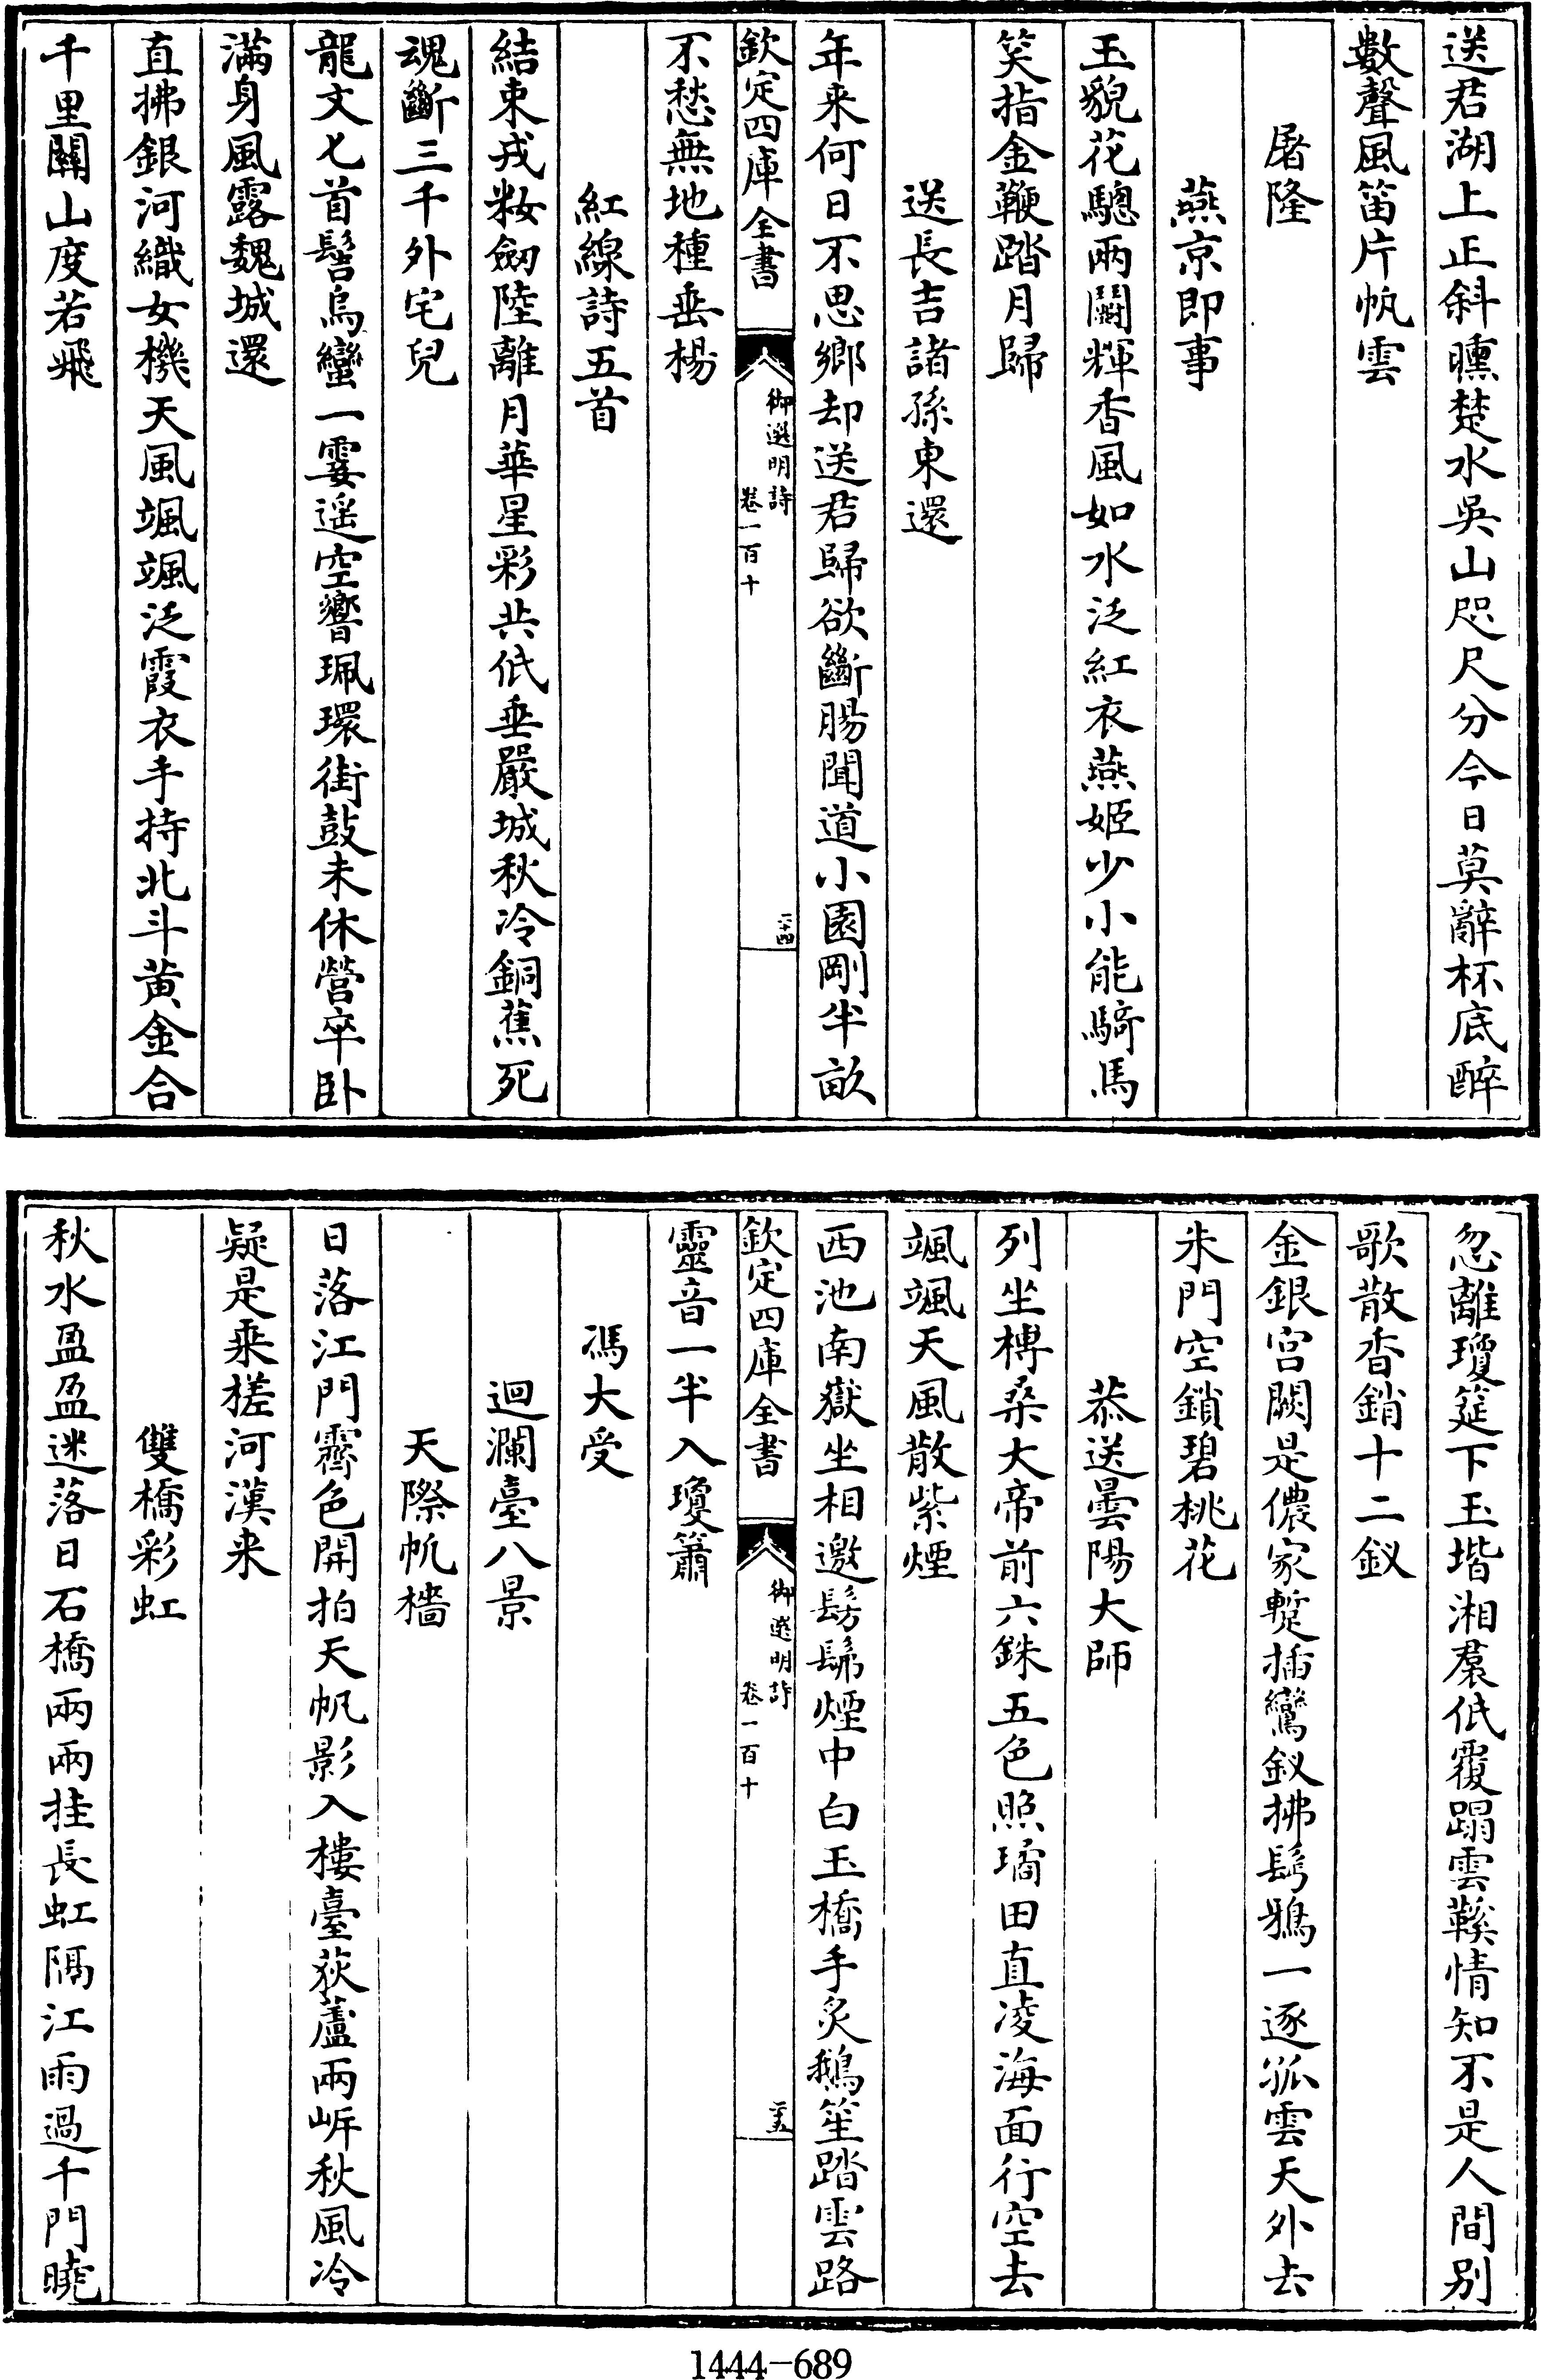 送君湖上正斜曛楚水吳山咫尺分今日莫辭杯底醉
數聲風笛片帆雲
屠隆
燕京即事
玉貌花驄兩鬬輝香風如水泛紅衣燕姬少小能騎馬
笑指金鞭踏月歸
送長吉諸孫東還
年来何日不思鄉却送君歸欲斷腸聞道小園剛半畝
欽定四庫全書
御選明詩
卷一百十
二十四
不愁無地種垂楊
紅線詩五首
結束戎粧劒陸離月華星彩共低垂嚴城秋冷銅蕉死
魂斷三千外宅兒
龍文匕首髻烏蠻一霎遥空響珮環街鼓未休營卒卧
滿身風露魏城還
直拂銀河織女機天風颯颯泛霞衣手持北斗黄金合
千里關山度若飛
忽離瓊筵下玉堦湘裙低覆蹋雲鞵情知不是人間别
歌散香銷十二釵
金銀宫闕是儂家蹔插鸞釵拂髩鴉一逐孤雲天外去
朱門空鎖碧桃花
恭送曇陽大師
列坐榑桑大帝前六銖五色照璚田直凌海面行空去
颯颯天風散紫煙
西池南嶽坐相邀髣髴煙中白玉橋手炙鵝笙踏雲路
欽定四庫全書
御選明詩
卷一百十
二十五
靈音一半入瓊簫
馮大受
迴瀾臺八景
天際帆檣
日落江門霽色開拍天帆影入樓臺荻蘆兩岸秋風冷
疑是乘槎河漢来
雙橋彩虹
秋水盈盈迷落日石橋兩兩挂長虹隔江雨過千門曉
1444-689